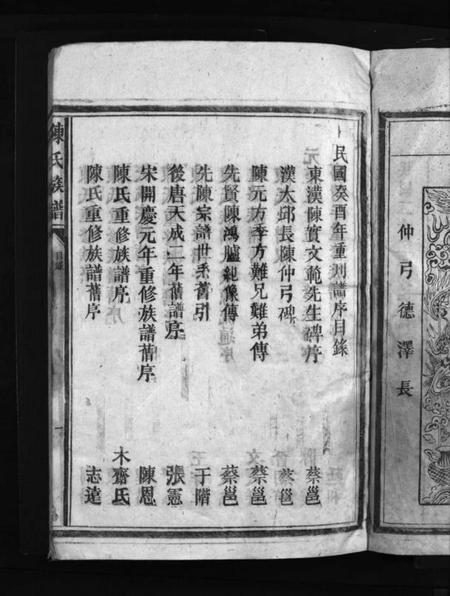 仲弓德澤長
民國癸酉年重刋譜序目錄
東漢陳實文範先生碑序 蔡邕
漢太邱長陳仲弓碑 蔡邕
陳元方季方難兄難弟傳 蔡邕
先賢陳鴻臚紀像傳 蔡邕
先陳宗譜世系舊引 于階
後唐天成二年舊譜序 張憲
宋開慶元年重修族譜舊序 陳恩
陳氏重修族譜序 木齋氏
陳氏重修族譜舊序 志遠
陳氏族譜
目錄
一